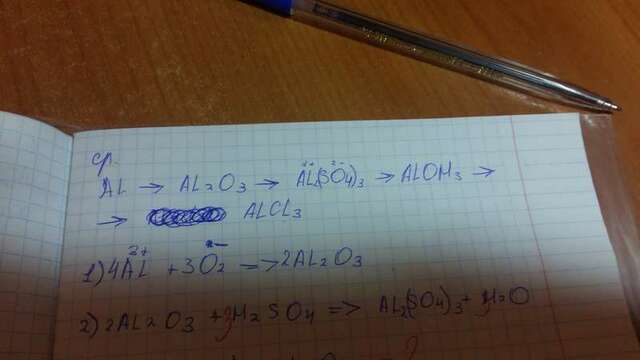 ср.
AL → AL2O3 → AL2(SO4)3 → ALOH3 →
→ ALCL3
1) 4AL + 3O2 => 2AL2O3
2) 2AL2O3 + 3H2SO4 => AL2(SO4)3 + 3H2O